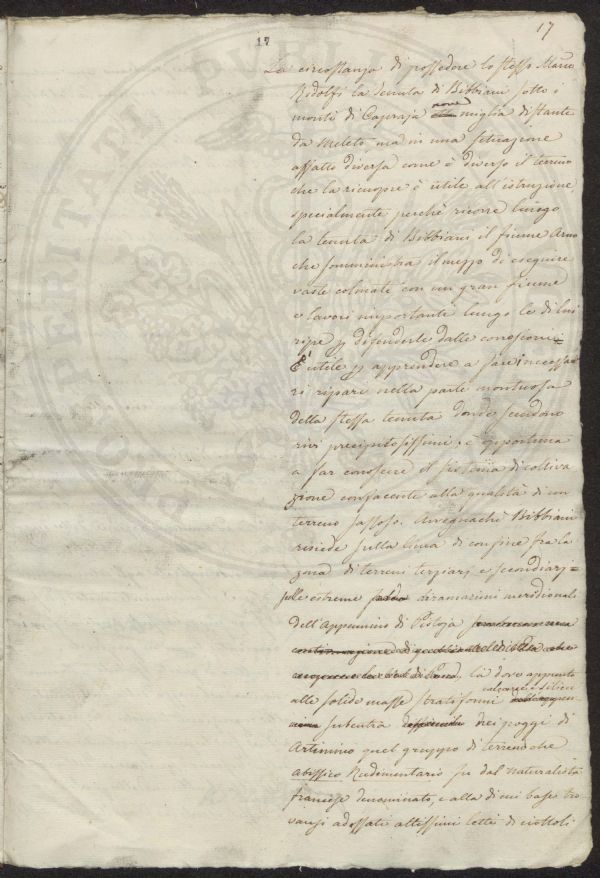 17
17
La circostanza di possedere lo stesso March.
Ridolfi la tenuta di Bibbiani sotto i
monti di Capraja nove miglia distante
da Meleto, ma in una situazione
affatto diversa come è diverso il terreno
che la ricuopre è utile all'istruzione
specialmente perchè ricorre lungo
la tenuta di Bibbiani il fiume Arno
che somministra il mezzo di eseguire
vaste colmate con un gran fiume
e lavori importante lungo le di lui
ripe p difenderle dalle corrosioni=
È utile p apprendere a fare i necessa
rj ripari nella parte montuosa
della stessa tenuta donde scendono
rivi precipitosissimi, è opportuna
a far conoscere il sistema di coltiva
zione confacente alla qualità di un
terreno sassoso. Avvegnachè Bibbiani
risiede sulla linea di confine fra la
zona di terreni terziarj e secondiarj=
sulle estreme diramazioni meridionali
dell'Appennino di Pistoja
là dove appunto
alle solide masse stratiformi calcaree e silicee
subentra nei poggi di
Artimino quel gruppo di terreni che
Abissico Rudimentario fu dal naturalista
francese denominato, e alla di cui base tro
vansi adossati altissimi letti di ciottoli